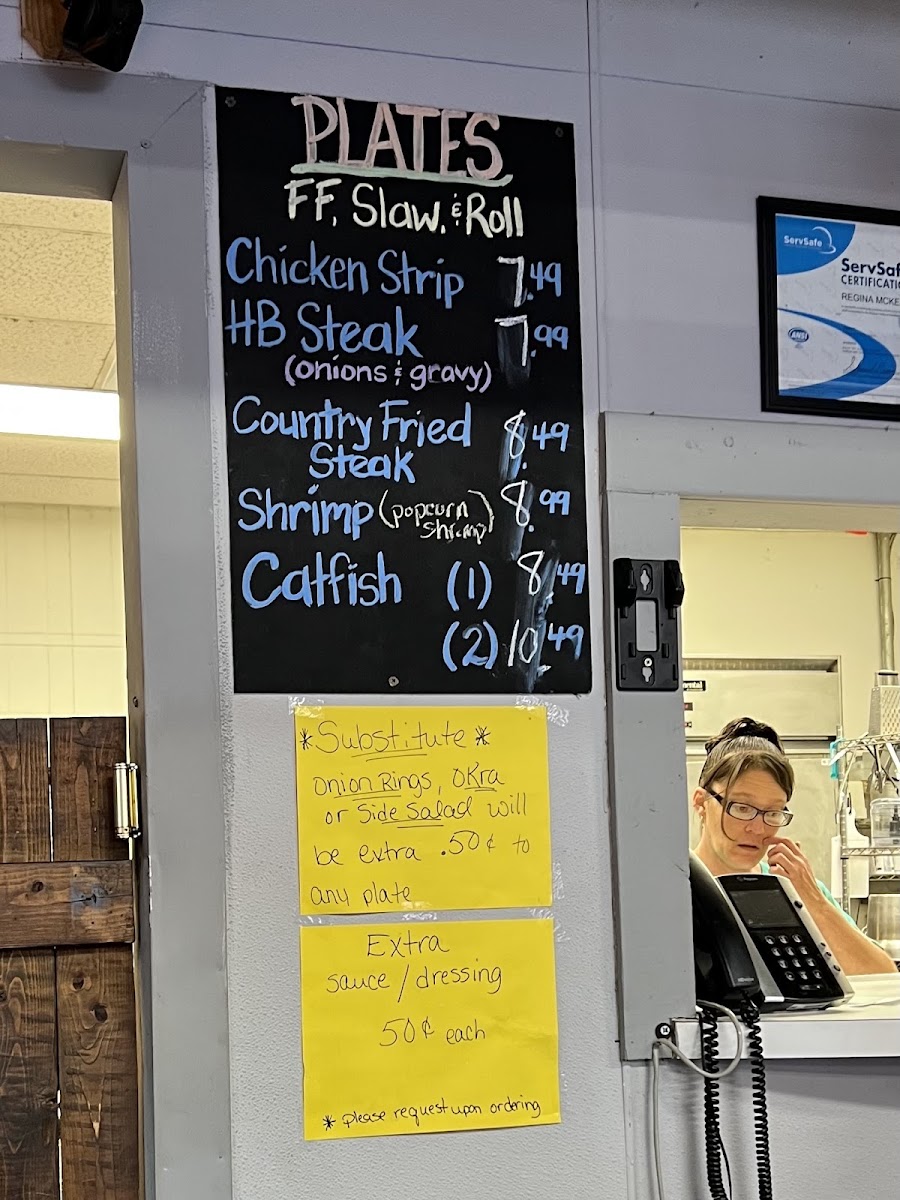 PLATES
FF, Slaw, & Roll
Chicken Strip 7.49
HB Steak 7.99
(onions & gravy)
Country Fried 8.49
Steak
Shrimp (popcorn shrimp) 8.99
Catfish (1) 8.49
(2) 10.49
*Substitute*
Onion Rings, OKra
or Side Salad will
be extra .50¢ to
any plate
Extra
sauce/dressing
50¢ each
* please request upon ordering
ServSafe
ServSaf
CERTIFICATIO
REGINA MCKE
ANSI